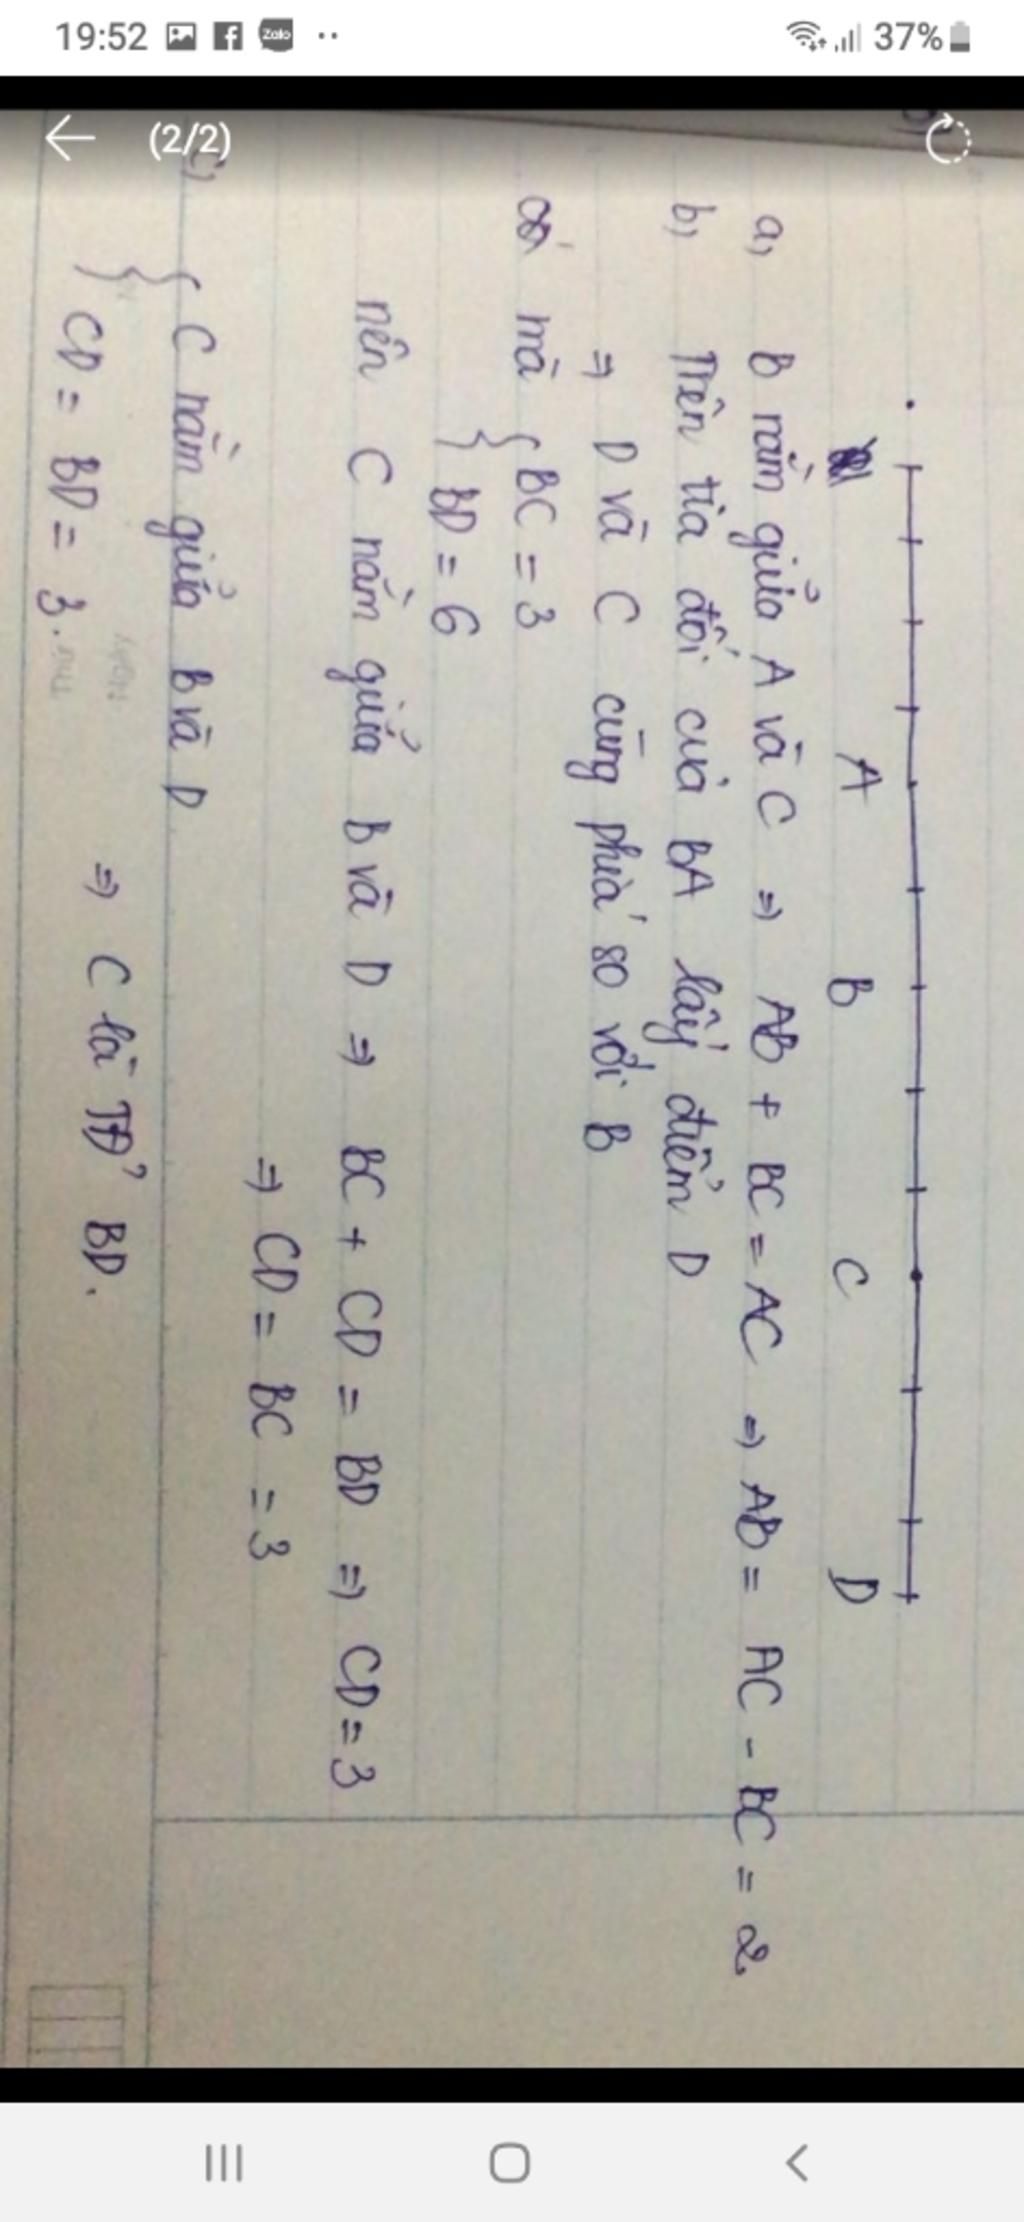 19:52 Zalo 37%
(2/2)
A B C D
a, B nằm giữa A và C ⇒ AB + BC = AC ⇒ AB = AC - BC = 2
b, Trên tia đối của BA lấy điểm D
⇒ D và C cùng phía so với B
mà { BC = 3
BD = 6
nên C nằm giữa B và D ⇒ BC + CD = BD ⇒ CD = 3
⇒ CD = BC = 3
c, { C nằm giữa B và D
CD = BD = 3.
⇒ C là TĐ' BD.